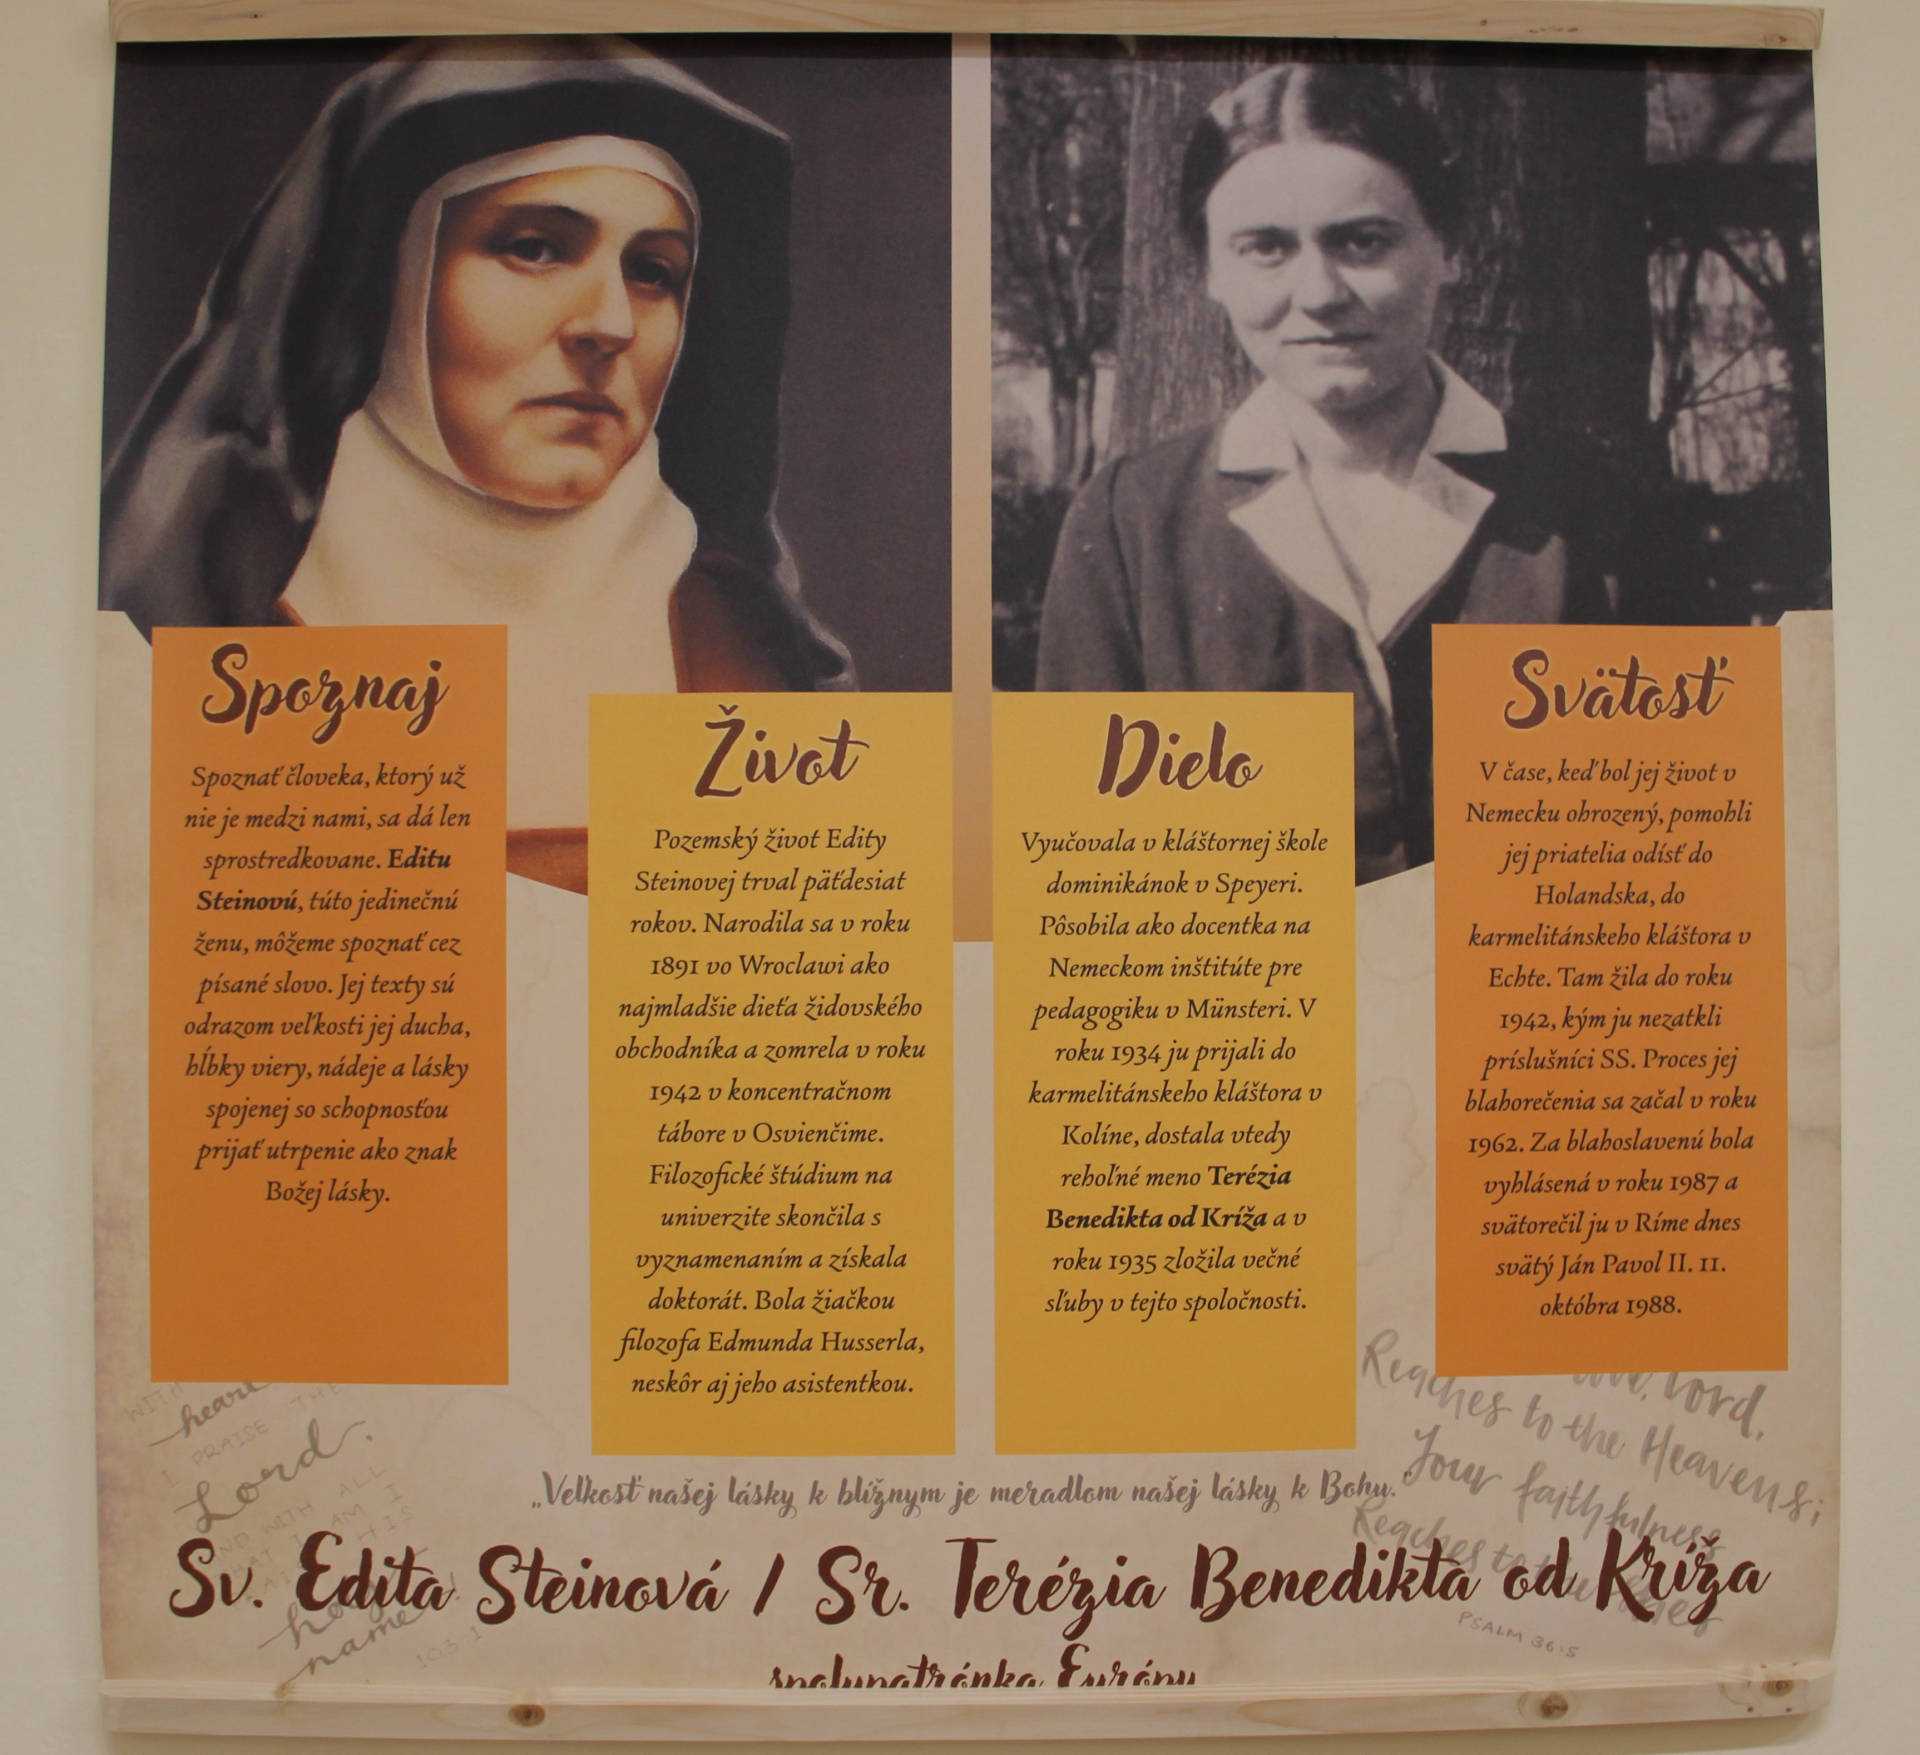 Spoznaj
Spoznať človeka, ktorý už
nie je medzi nami, sa dá len
sprostredkovane. Editu
Steinovú, túto jedinečnú
ženu, môžeme spoznať cez
písané slovo. Jej texty sú
odrazom veľkosti jej ducha,
hĺbky viery, nádeje a lásky
spojenej so schopnosťou
prijať utrpenie ako znak
Božej lásky.
Život
Pozemský život Edity
Steinovej trval päťdesiat
rokov. Narodila sa v roku
1891 vo Wroclawi ako
najmladšie dieťa židovského
obchodníka a zomrela v roku
1942 v koncentračnom
tábore v Osvienčime.
Filozofické štúdium na
univerzite skončila s
vyznamenaním a získala
doktorát. Bola žiačkou
filozofa Edmunda Husserla,
neskôr aj jeho asistentkou.
Dielo
Vyučovala v kláštornej škole
dominikánok v Speyeri.
Pôsobila ako docentka na
Nemeckom inštitúte pre
pedagogiku v Münsteri. V
roku 1934 ju prijali do
karmelitánskeho kláštora v
Kolíne, dostala vtedy
rehoľné meno Terézia
Benedikta od Kríža a v
roku 1935 zložila večné
sľuby v tejto spoločnosti.
Svätosť
V čase, keď bol jej život v
Nemecku ohrozený, pomohli
jej priatelia odísť do
Holandska, do
karmelitánskeho kláštora v
Echte. Tam žila do roku
1942, kým ju nezatkli
príslušníci SS. Proces jej
blahorečenia sa začal v roku
1962. Za blahoslavenú bola
vyhlásená v roku 1987 a
svätorečil ju v Ríme dnes
svätý Ján Pavol II. 11.
októbra 1988.
WITH
heart
I PRAISE THE
Lord.
AND WITH ALL
THAT I AM I
HIS
holy
name!
103:1
Lord,
Reaches to the Heavens;
Your faithfulness
Reaches to the
PSALM 36:5
„Veľkosť našej lásky k blížnym je meradlom našej lásky k Bohu."
Sv. Edita Steinová / Sr. Terézia Benedikta od Kríža
spolupatrónka Európy